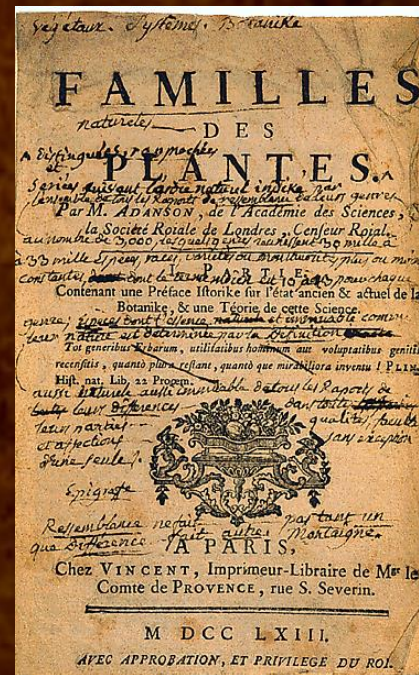 Végétaux. Systèmes. Botanike
FAMILLES
natureles
DES
Distinguées, raprochées
PLANTES.
et
Seriées suivant l'ordre naturel indiké par
l'ensemble de tous les Raports de ressemblance de leurs genres
Par M. ADANSON, de l'Académie des Sciences,
la Société Roiale de Londres, Censeur Roial.
au nombre de 3,000, lesquels genres réunissent 30 mille à
33 mille Espèces, races, variétés ou monstruosités, plus ou moins
PARTIE
constantes, dont le
pour chaque
Contenant une Préface Istorike sur l'état ancien & actuel de la
Botanike, & une Téorie de cette Science.
genre; Espèces dont l'essence et immuable comme
leur est déterminée par la Définition
Tot generibus Erbarum, utilitatibus hominum aut voluptatibus genitis
recensitis, quantò plura restant, quantò que mirabiliora inventu ! PLIN.
Hist. nat. Lib. 22 Proœm.
aussi naturele aussi immuable de tous les Raports de
leurs Différences dans toutes
leurs parties qualités, facultés
et affections sans exception
d'une seule.
Epigrafe
Ressemblance ne fait pas tant un
que Différence fait autre. Montaigne.
A PARIS,
Chez VINCENT, Imprimeur-Libraire de Mgr le
Comte de PROVENCE, rue S. Severin.
M DCC LXIII.
AVEC APPROBATION, ET PRIVILEGE DU ROI.